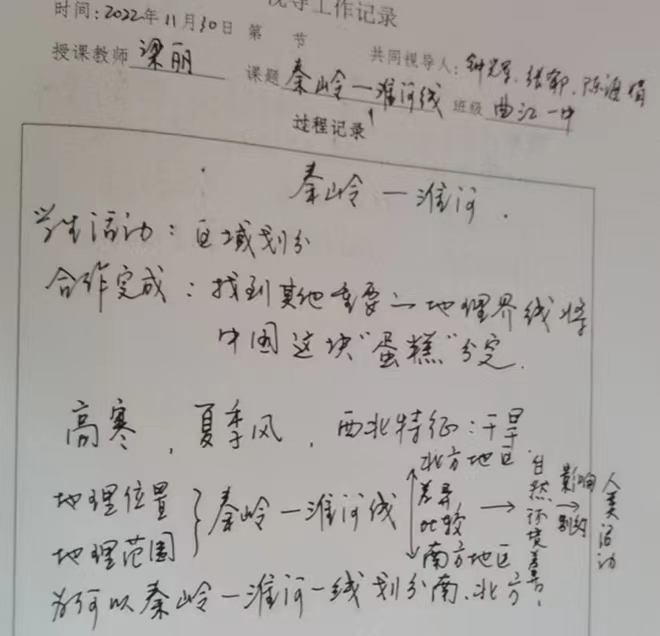 视导工作记录
时间:2022年11月30日 第 节 共同视导人:
授课教师 梁丽 课题 秦岭一淮河线 班级 曲江一中
过程记录
秦岭一淮河.
学生活动:区域划分
合作完成:找到其他重要的地理界线将
中国这块"蛋糕"分完.
高寒,夏季风,西北特征:干旱
地理位置
地理范围
秦岭一淮河线
北方地区
差异
比较
南方地区
自然环境差异
影响
制约
人类活动
为何以秦岭一淮河一线划分南、北方?